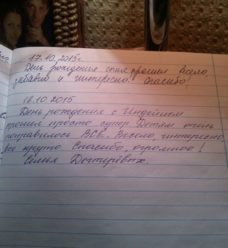 17.10.2015г
День рождения сына прошел весело,
забавно и интересно. Спасибо!
18.10.2015
День рождения с Индейцем
прошел просто супер. Детям очень
понравилось ВСЁ. Весело, интересно,
все круто. Спасибо, огромное!
Семья